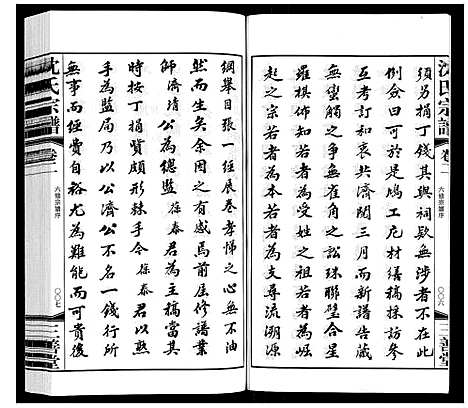 沈氏宗譜
卷一
六修宗譜序
〇〇六
三善堂
須另捐丁錢其與祠欵無涉者不在此
例僉曰可於是鳩工庀材繕稿採訪參
考訂和衷共濟閱三月而新譜告蕆
無蠻觸之爭無雀角之訟珠聯璧合星
羅棋佈知若者為受姓之祖若者為崛
起之宗若者為本支若者為支尋流溯源
綱舉目張一經展卷孝悌之心無不油
然而生矣余因之有感焉前屆修譜業
師濟清公為總監葆泰君為主稿當其
時按丁捐貲頗形棘手今葆泰君以熟
手為監局乃以公濟公不名一錢行所
無事而經費自裕尤為難能而可貴後
沈氏宗譜
卷一
六修宗譜序
〇〇七
三善堂